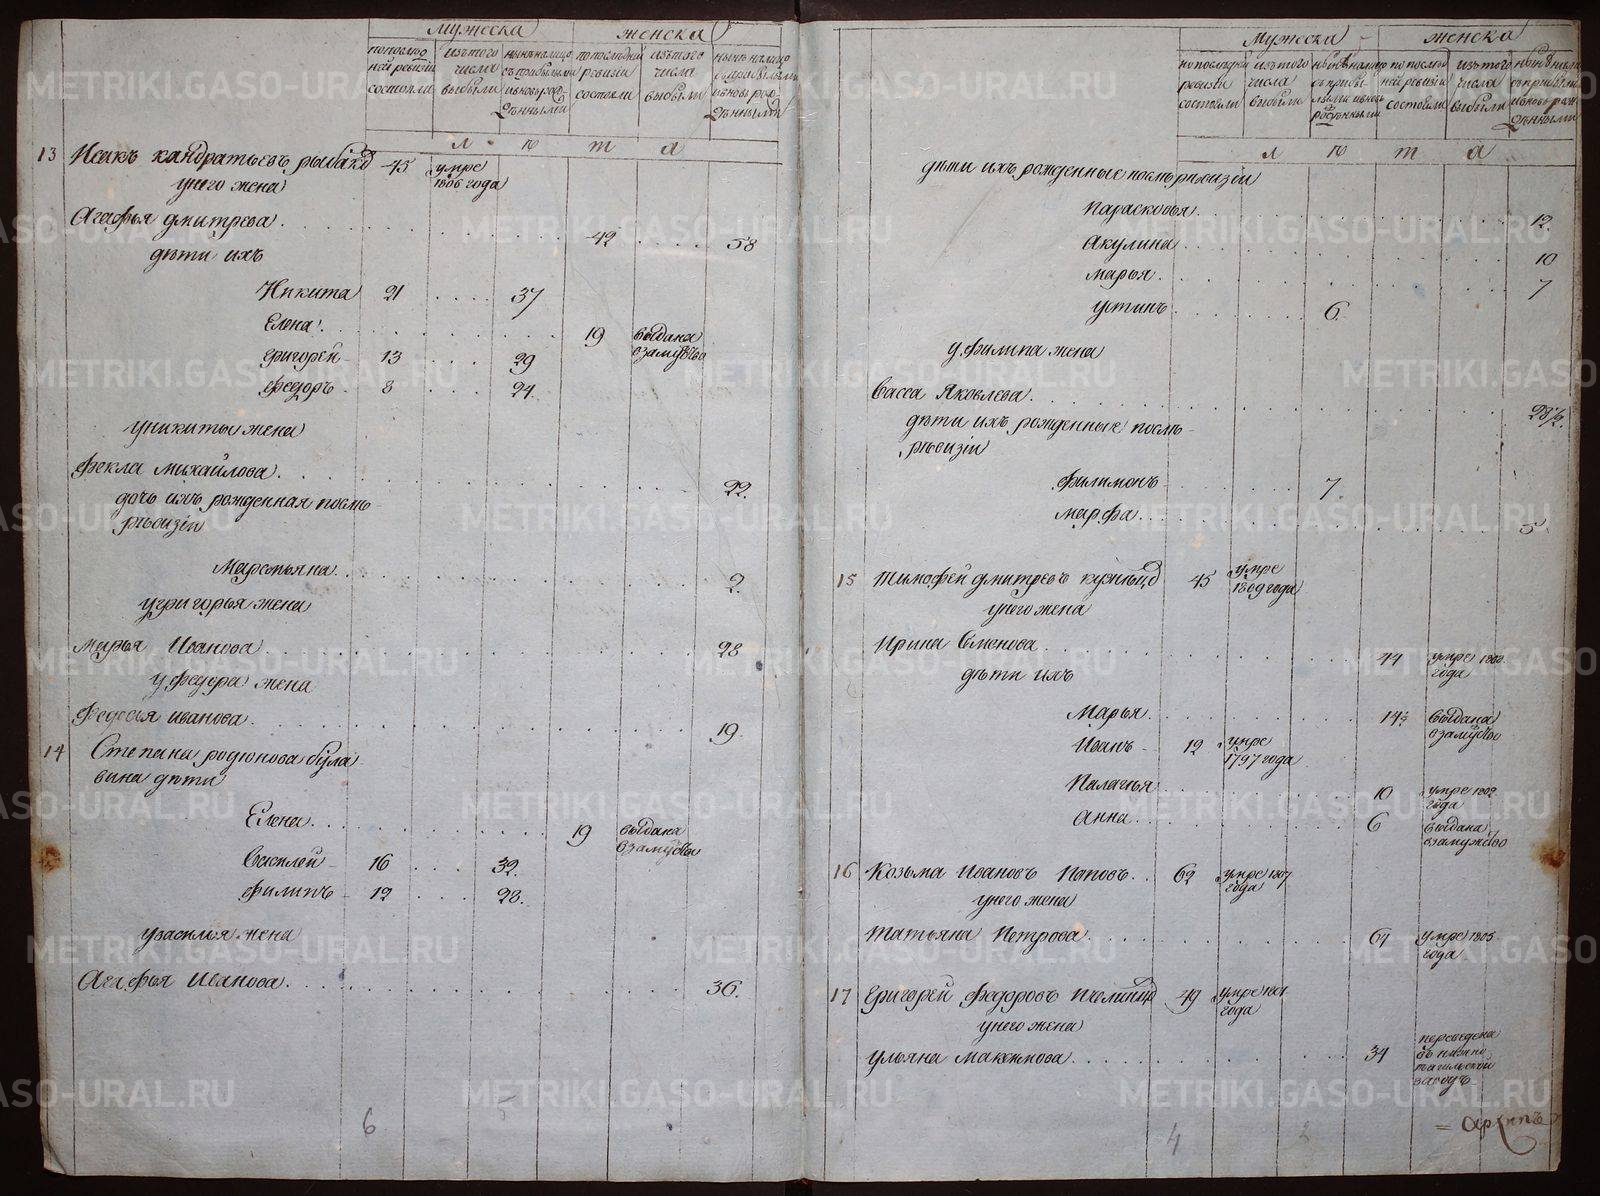 мужеска женска
по последней ревизiи состояли
изъ того числа выбыли
ныне налицо съ прибылыми и вновь рожденными
по последней ревизiи состояли
изъ того числа выбыли
ныне налицо съ прибылыми и вновь рожденными
л ѣ т а
13 Исакъ кандратьевъ рыбаков 45 умре 1806 года
у него жена
Агафья дмитрева 42 58
дѣти ихъ
Никита 21 37
Елена 19 выдана взамужство
григорей 13 29
Федоръ 8 24
у никиты жена
Фекла михайлова 22
дочь ихъ рожденная послѣ
ревизiи
Маремьяна 2
у григорья жена
Марья Иванова 28
у федора жена
Федосья иванова 19
14 Степана родионова була
вина дѣти
Елена 19 выдана взамужство
Василей 16 32
Филипъ 12 28
у василья жена
Агафья Иванова 36
6
мужеска женска
по последней ревизiи состояли
изъ того числа выбыли
ныне налицо съ прибылыми и вновь рожденными
по последней ревизiи состояли
изъ того числа выбыли
ныне налицо съ прибылыми и вновь рожденными
л ѣ т а
дѣти ихъ рожденные послѣ ревизiи
Парасковья 12
Акулина 10
Марья 7
устинъ 6
у филипа жена
Васса Яковлева 28 1/2
дѣти ихъ рожденные послѣ
ревизiи
Филимонъ 7
Марфа 5
15 Тимофей дмитревъ кузнецо 45 умре 1809 года
у него жена
Ирина Семенова 44 умре 1808 года
дѣти ихъ
Марья 14 1/2 выдана взамужство
Иванъ 12 умре 1797 года
Палагья 10 умре 1802 года
Анна 6 выдана взамужство
16 Козьма Ивановъ Поповъ 62 умре 1807 года
у него жена
Татьяна Петрова 64 умре 1805 года
17 Григорей Федоровъ 49 умре 1801 года
у него жена
ульяна максимова 34 переведена въ нижне тагильской заводъ
Архипъ
4 2
METRIKI.GASO-URAL.RU